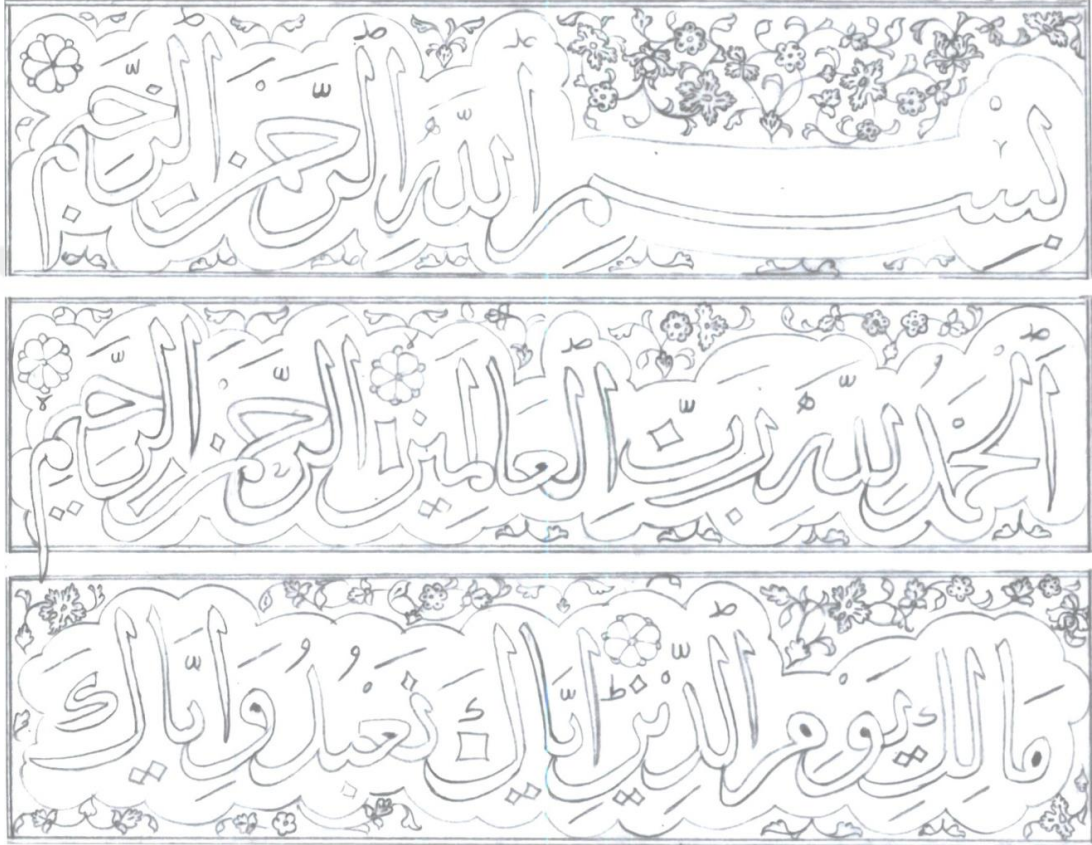 بِسْمِ اللّٰهِ الرَّحْمٰنِ الرَّحِيْمِ
اَلْحَمْدُ لِلّٰهِ رَبِّ الْعَالَمِيْنَ الرَّحْمٰنِ الرَّحِيْمِ
مَالِكِ يَوْمِ الدِّيْنِ اِيَّاكَ نَعْبُدُ وَاِيَّاكَ